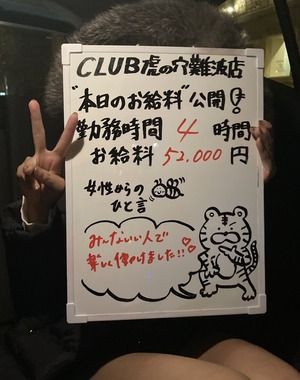 CLUB虎の穴難波店
"本日のお給料"公開!
勤務時間 4 時間
お給料 52.000 円
女性からの
ひと言
みんないい人で
楽しく働けました!!